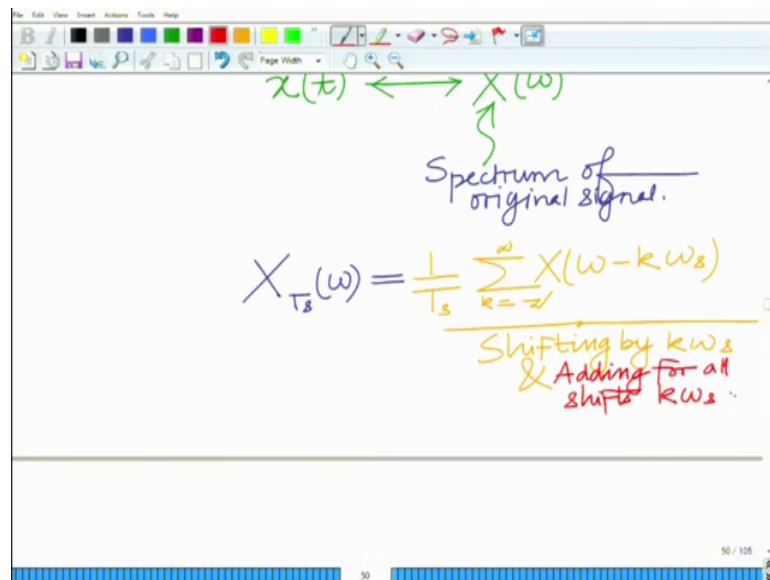 File Edit View Insert Actions Tools Help
B I
Page Width
x(t) ⟷ X(ω)
Spectrum of
original signal.
X_{Ts}(ω) = 1/Ts ∑_{k=-∞}^{∞} X(ω - kωs)
Shifting by kωs
& Adding for all
shifts kωs.
50 / 105
50